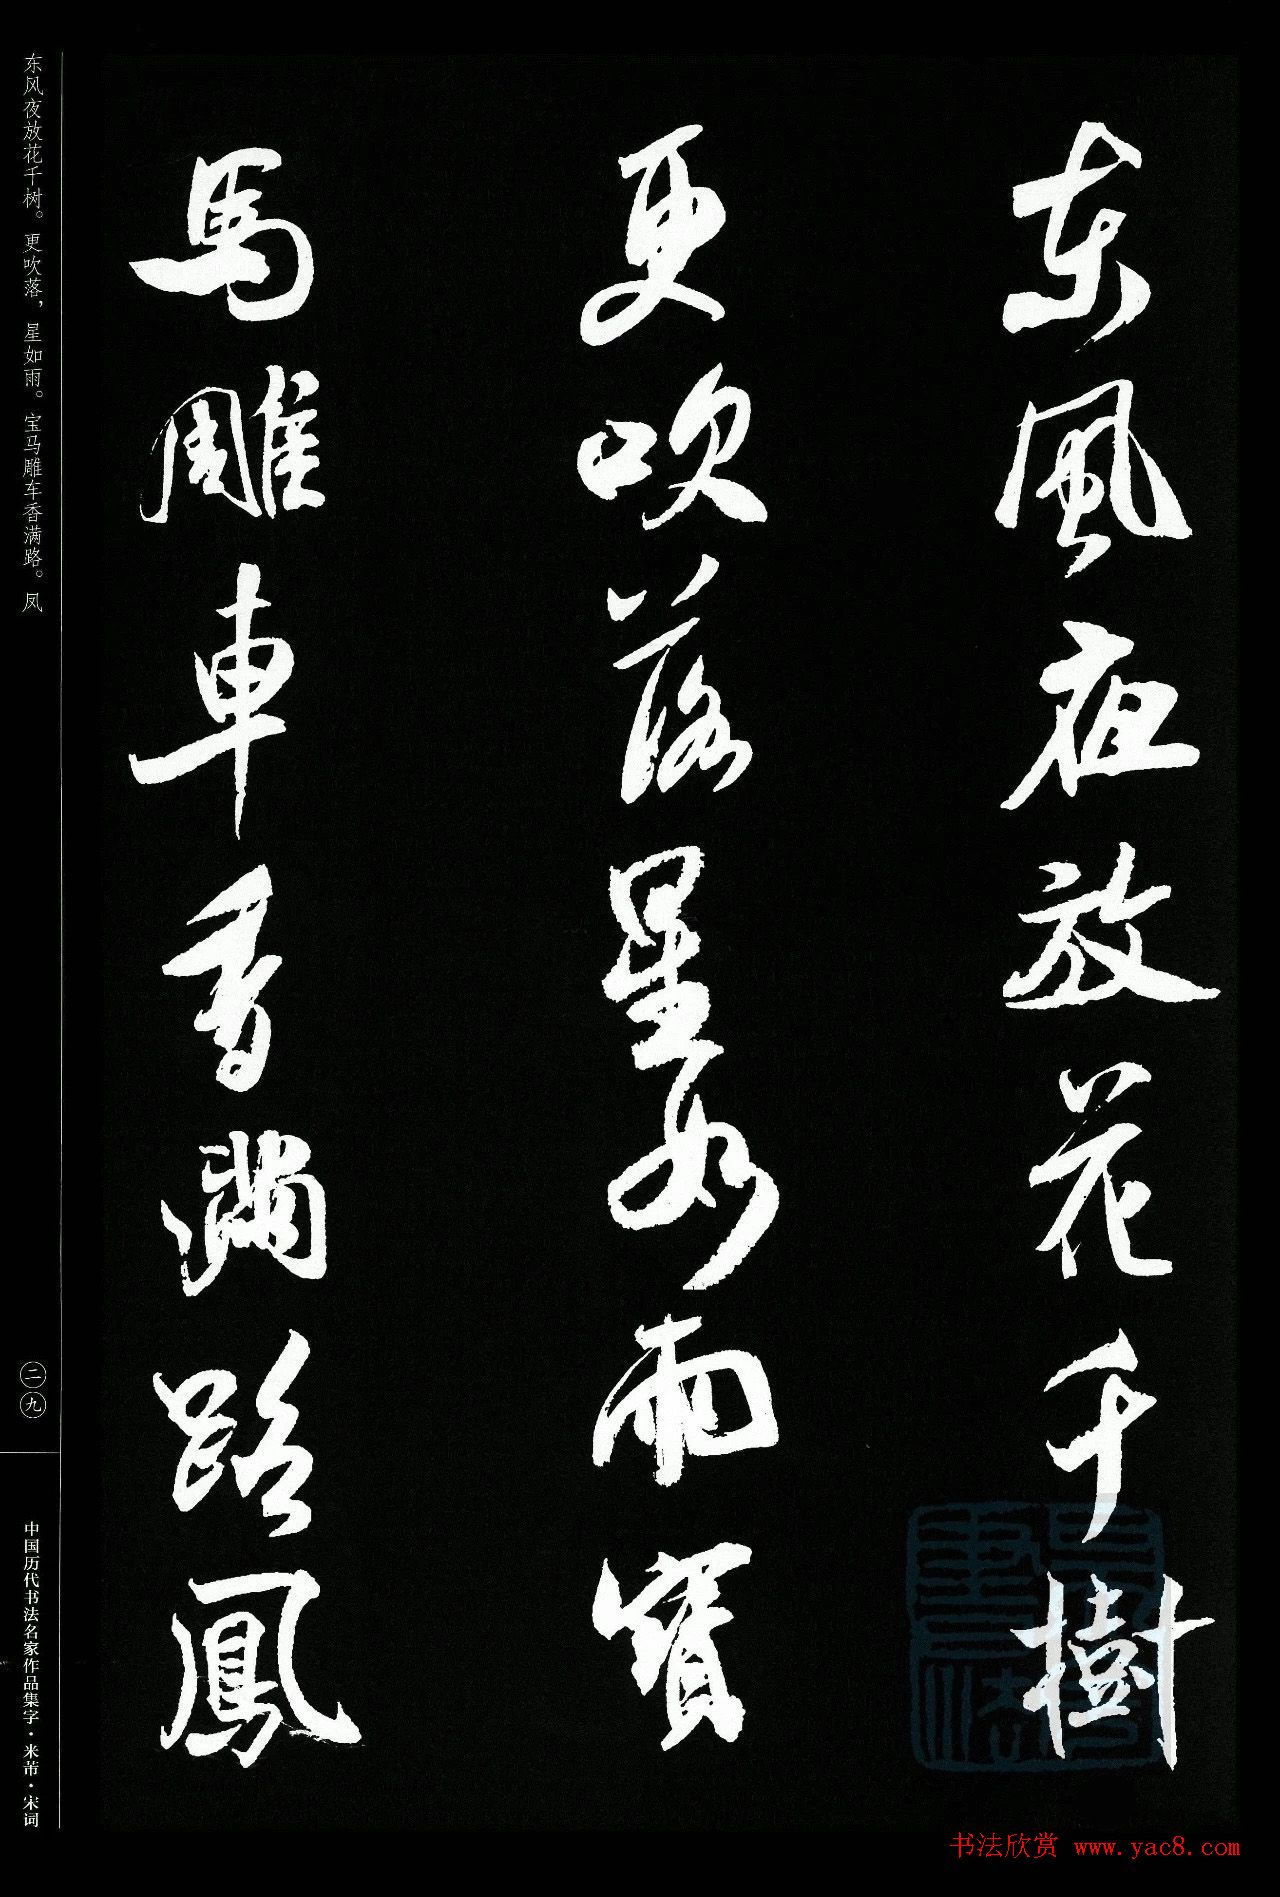 東風夜放花千樹
更吹落星如雨寶
馬雕車香滿路鳳
东风夜放花千树。更吹落，星如雨。宝马雕车香满路。凤
二九
中国历代书法名家作品集字·米芾·宋词
书法欣赏 www.yac8.com